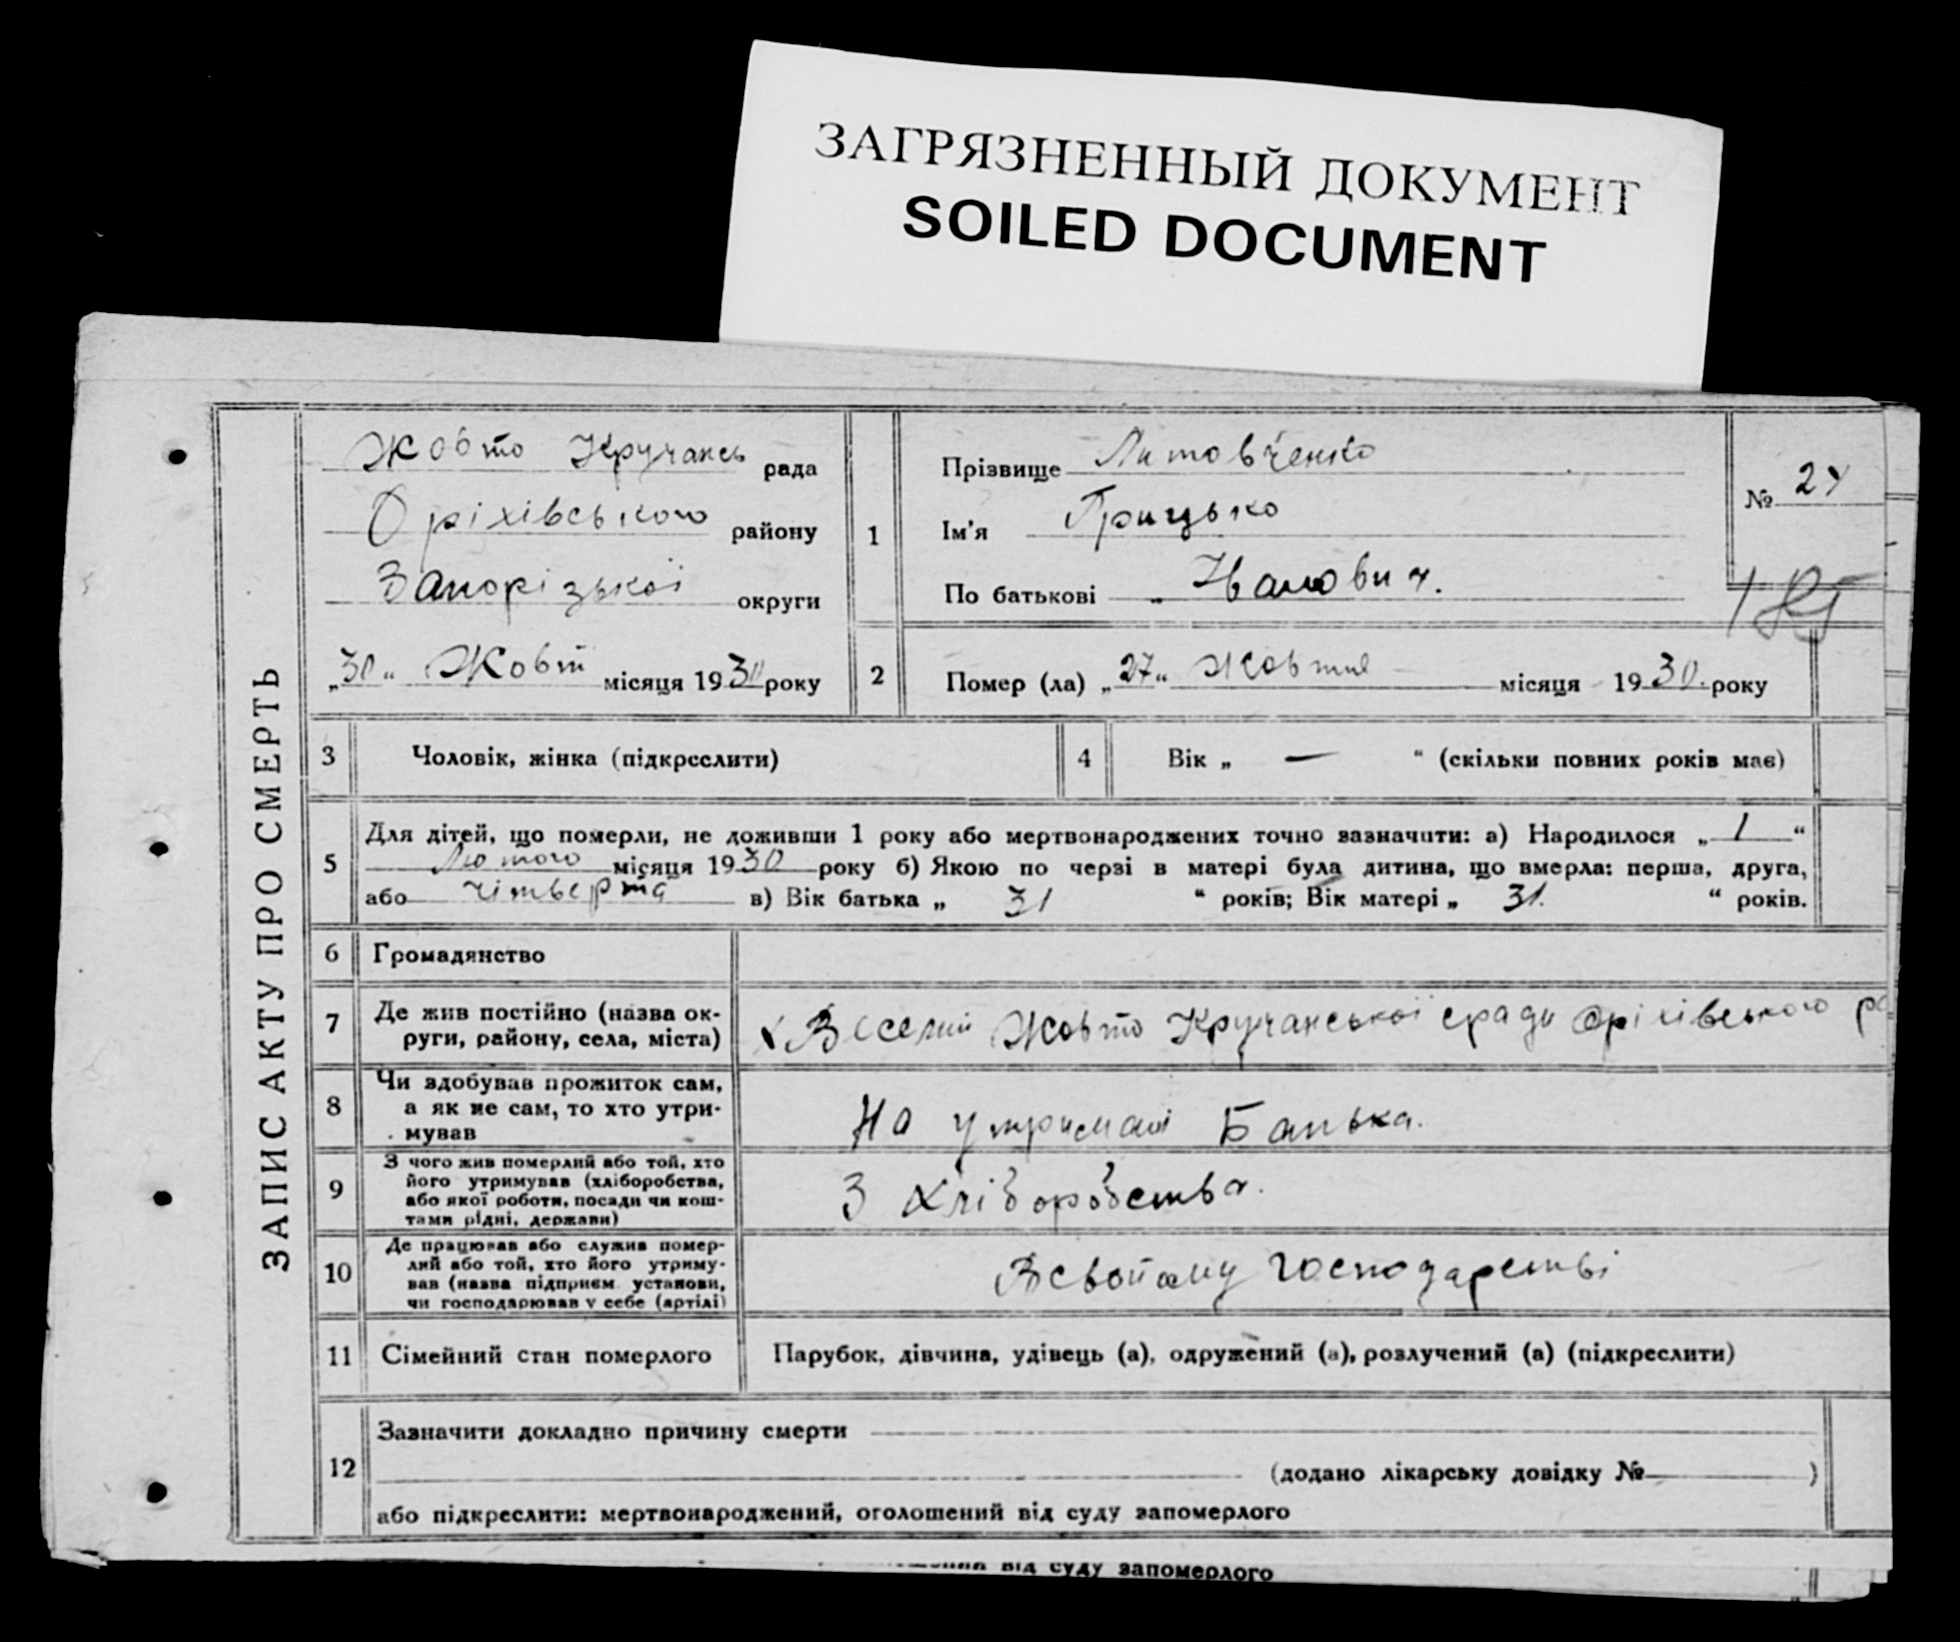 ЗАГРЯЗНЕННЫЙ ДОКУМЕНТ
SOILED DOCUMENT
ЗАПИС АКТУ ПРО СМЕРТЬ
Жовто Кручансь рада
Оріхівського району
Запорізької округи
„30“ Жовт місяця 1930 року
1
Прізвище Литовченко
Ім'я Грицько
По батькові Іванович.
№ 24
2
Помер (ла) „27“ Жовтня місяця 1930. року
3 Чоловік, жінка (підкреслити)
4 Вік „ — “ (скільки повних років має)
5 Для дітей, що померли, не доживши 1 року або мертвонароджених точно зазначити: а) Народилося „ 1 “
Лютого місяця 1930 року б) Якою по черзі в матері була дитина, що вмерла: перша, друга,
або чітверта в) Вік батька „ 31 “ років; Вік матері „ 31. “ років.
6 Громадянство
7 Де жив постійно (назва ок-
руги, району, села, міста)
х Веселий Жовто Кручанської сради Оріхівського ра
8 Чи здобував прожиток сам,
а як не сам, то хто утри-
мував
На утримані Батька.
9 З чого жив померлий або той, хто
його утримував (хліборобства,
або якої роботи, посади чи кош-
тами рідні, держави)
З хліборобства.
10 Де працював або служив помер-
лий або той, хто його утриму-
вав (назва підприєм. установи,
чи господарював у себе (артілі)
В свойому господарстві
11 Сімейний стан померлого
Парубок, дівчина, удівець (а), одружений (а), розлучений (а) (підкреслити)
12 Зазначити докладно причину смерти
(додано лікарську довідку № )
або підкреслити: мертвонароджений, оголошений від суду запомерлого
від суду запомерлого